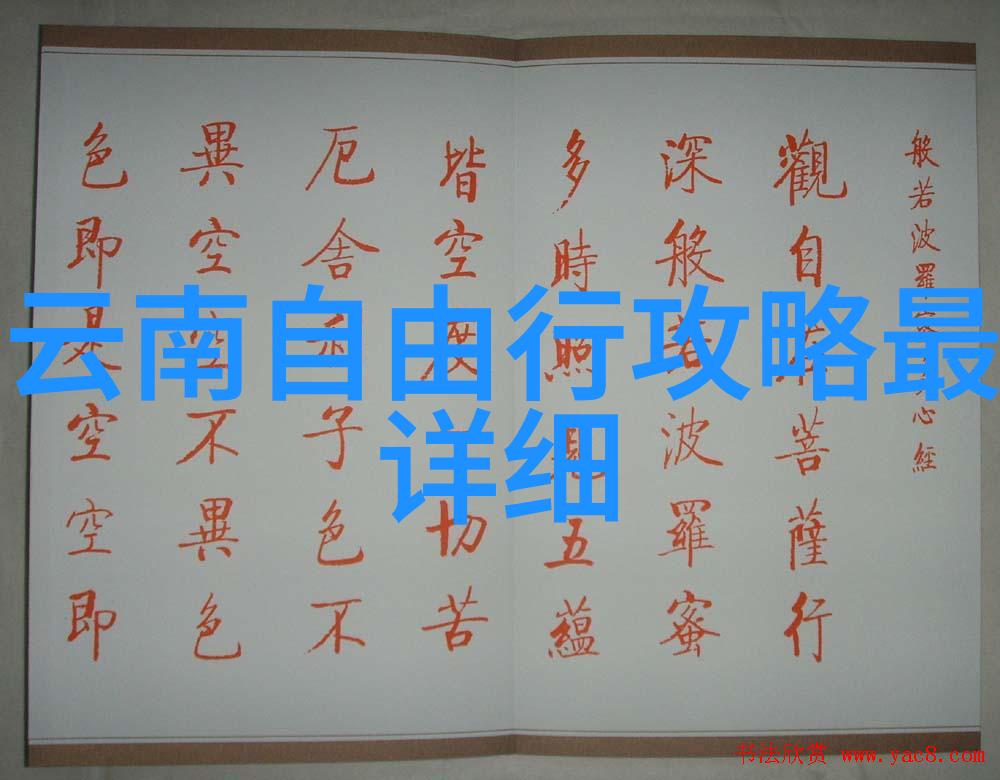 云南自由行攻略最
详细
般若波羅蜜多心經
觀自在菩薩行
深般若波羅蜜
多時照見五蘊
皆空度切苦
厄舍利子色不
異空空不異色
色即是空空即
书法欣赏 www.yac8.com